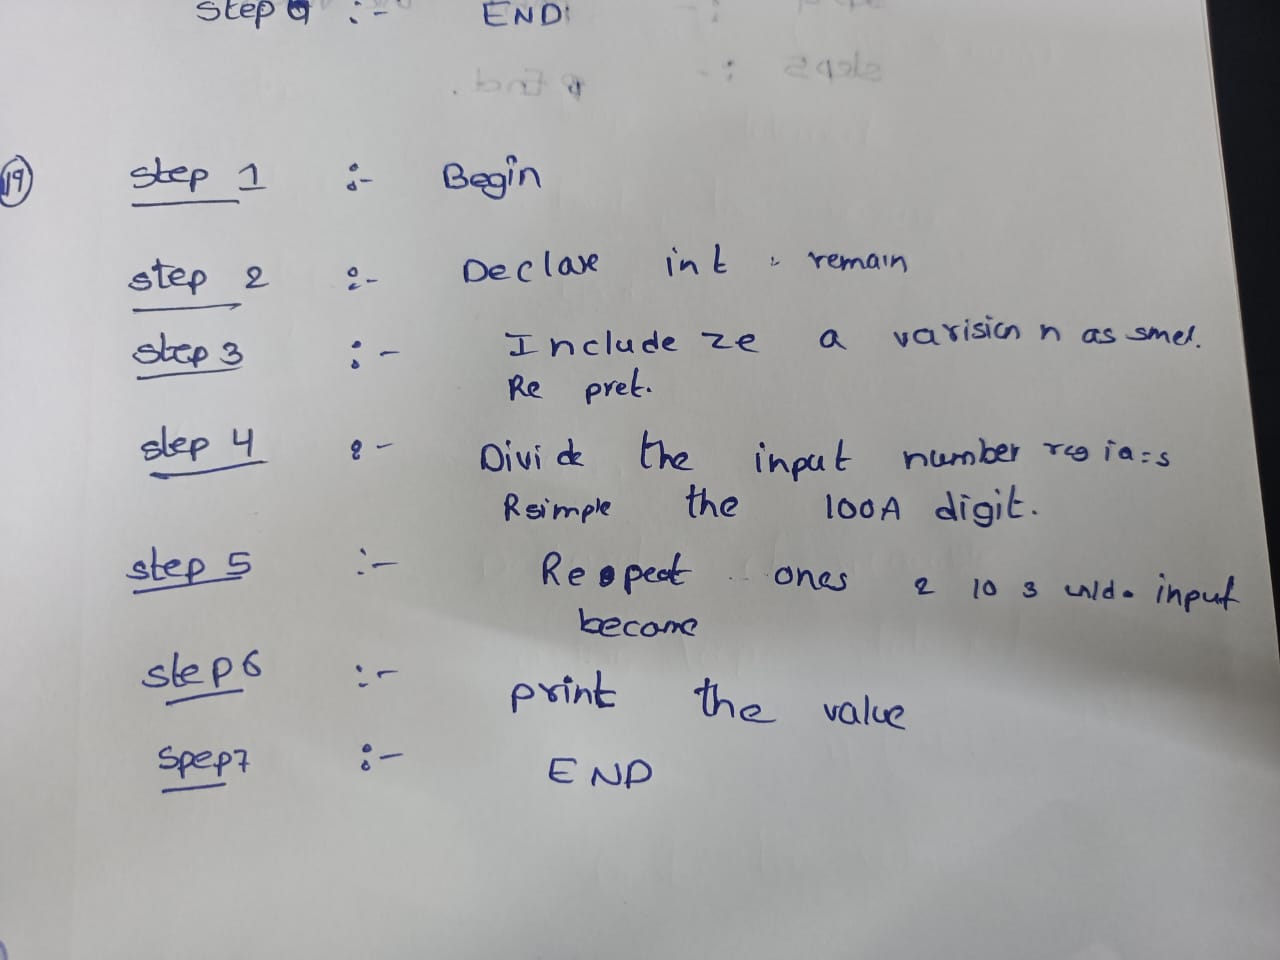 Step 9 :- END
19 step 1 :- Begin
step 2 :- Declare int : remain
step 3 :- Include ze a varisicn n as smel.
Re pret.
step 4 :- Divide the input number
Rsimple the 100A digit.
step 5 :- Respect ones 2 10 3 input
become
step 6 :- print the value
Spep7 :- END